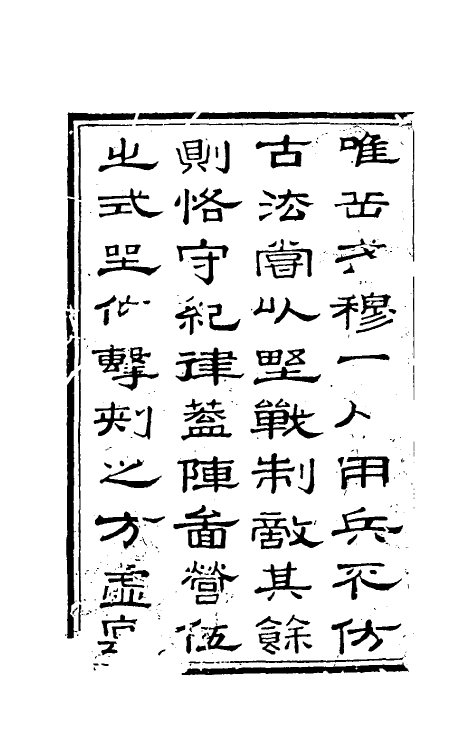 唯岳武穆一人用兵不仿
古法嘗以野戰制敵其餘
則恪守紀律蓋陣啚營伍
之式坐作擊刺之方虛